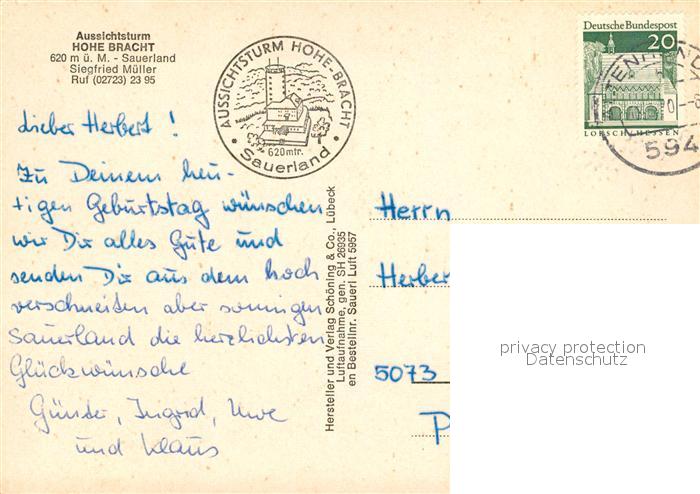 Aussichtsturm
HOHE BRACHT
620 m ü. M. - Sauerland
Siegfried Müller
Ruf (02723) 23 95
AUSSICHTSTURM HOHE-BRACHT
620 mtr.
Sauerland
Deutsche Bundespost
20
LORSCH/HESSEN
594
Lieber Herbert!
Zu Deinem heu-
tigen Geburtstag wünschen
wir Dir alles Gute und
senden Dir aus dem hoch
verschneiten aber sonnigen
Sauerland die herzlichsten
Glückwünsche
Günter, Ingrid, Uwe
und Klaus
Hersteller und Verlag Schöning & Co., Lübeck
Luftaufnahme, gen. SH 26935
en Bestellnr. Sauerl Luft 5957
Herrn
Herber
5073
P
privacy protection
Datenschutz